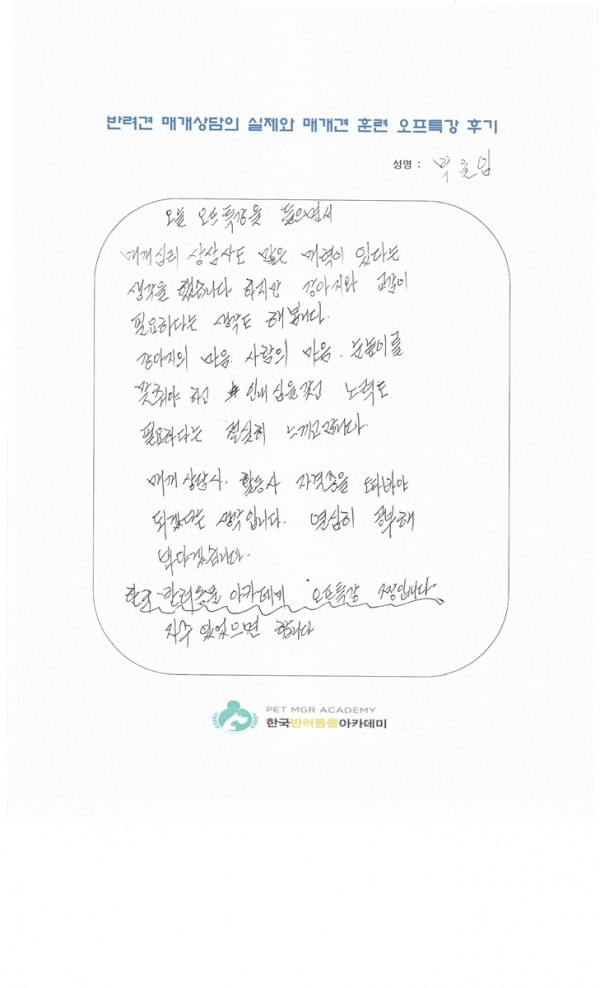 반려견 매개상담의 실제와 매개견 훈련 오프특강 후기
성명 : 박을임
오늘 오프특강을 들으면서
매개심리 상담사도 많은 매력이 있다는
생각을 했습니다 하지만 강아지와 교감이
필요하다는 생각도 해봅니다.
강아지의 마음 사람의 마음. 눈높이를
맞춰야 하고 인내심을 갖고 노력도
필요하다는 절실히 느끼고 갑니다.
매개상담사. 활용사 자격증을 따봐야
되겠다는 생각입니다. 열심히 공부해
봐야겠습니다.
한국 반려동물 아카데미 오프특강 입니다
자주 있었으면 합니다
PET MGR ACADEMY
한국반려동물아카데미